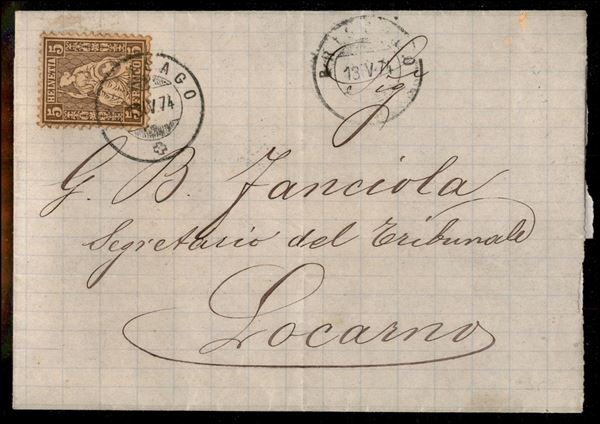 5 5
HELVETIA FRANCO
5 5
SAGO
V.74
BRISSAGO
13 V 74
Sig
G. B. Fanciola
Segretario del Tribunale
Locarno